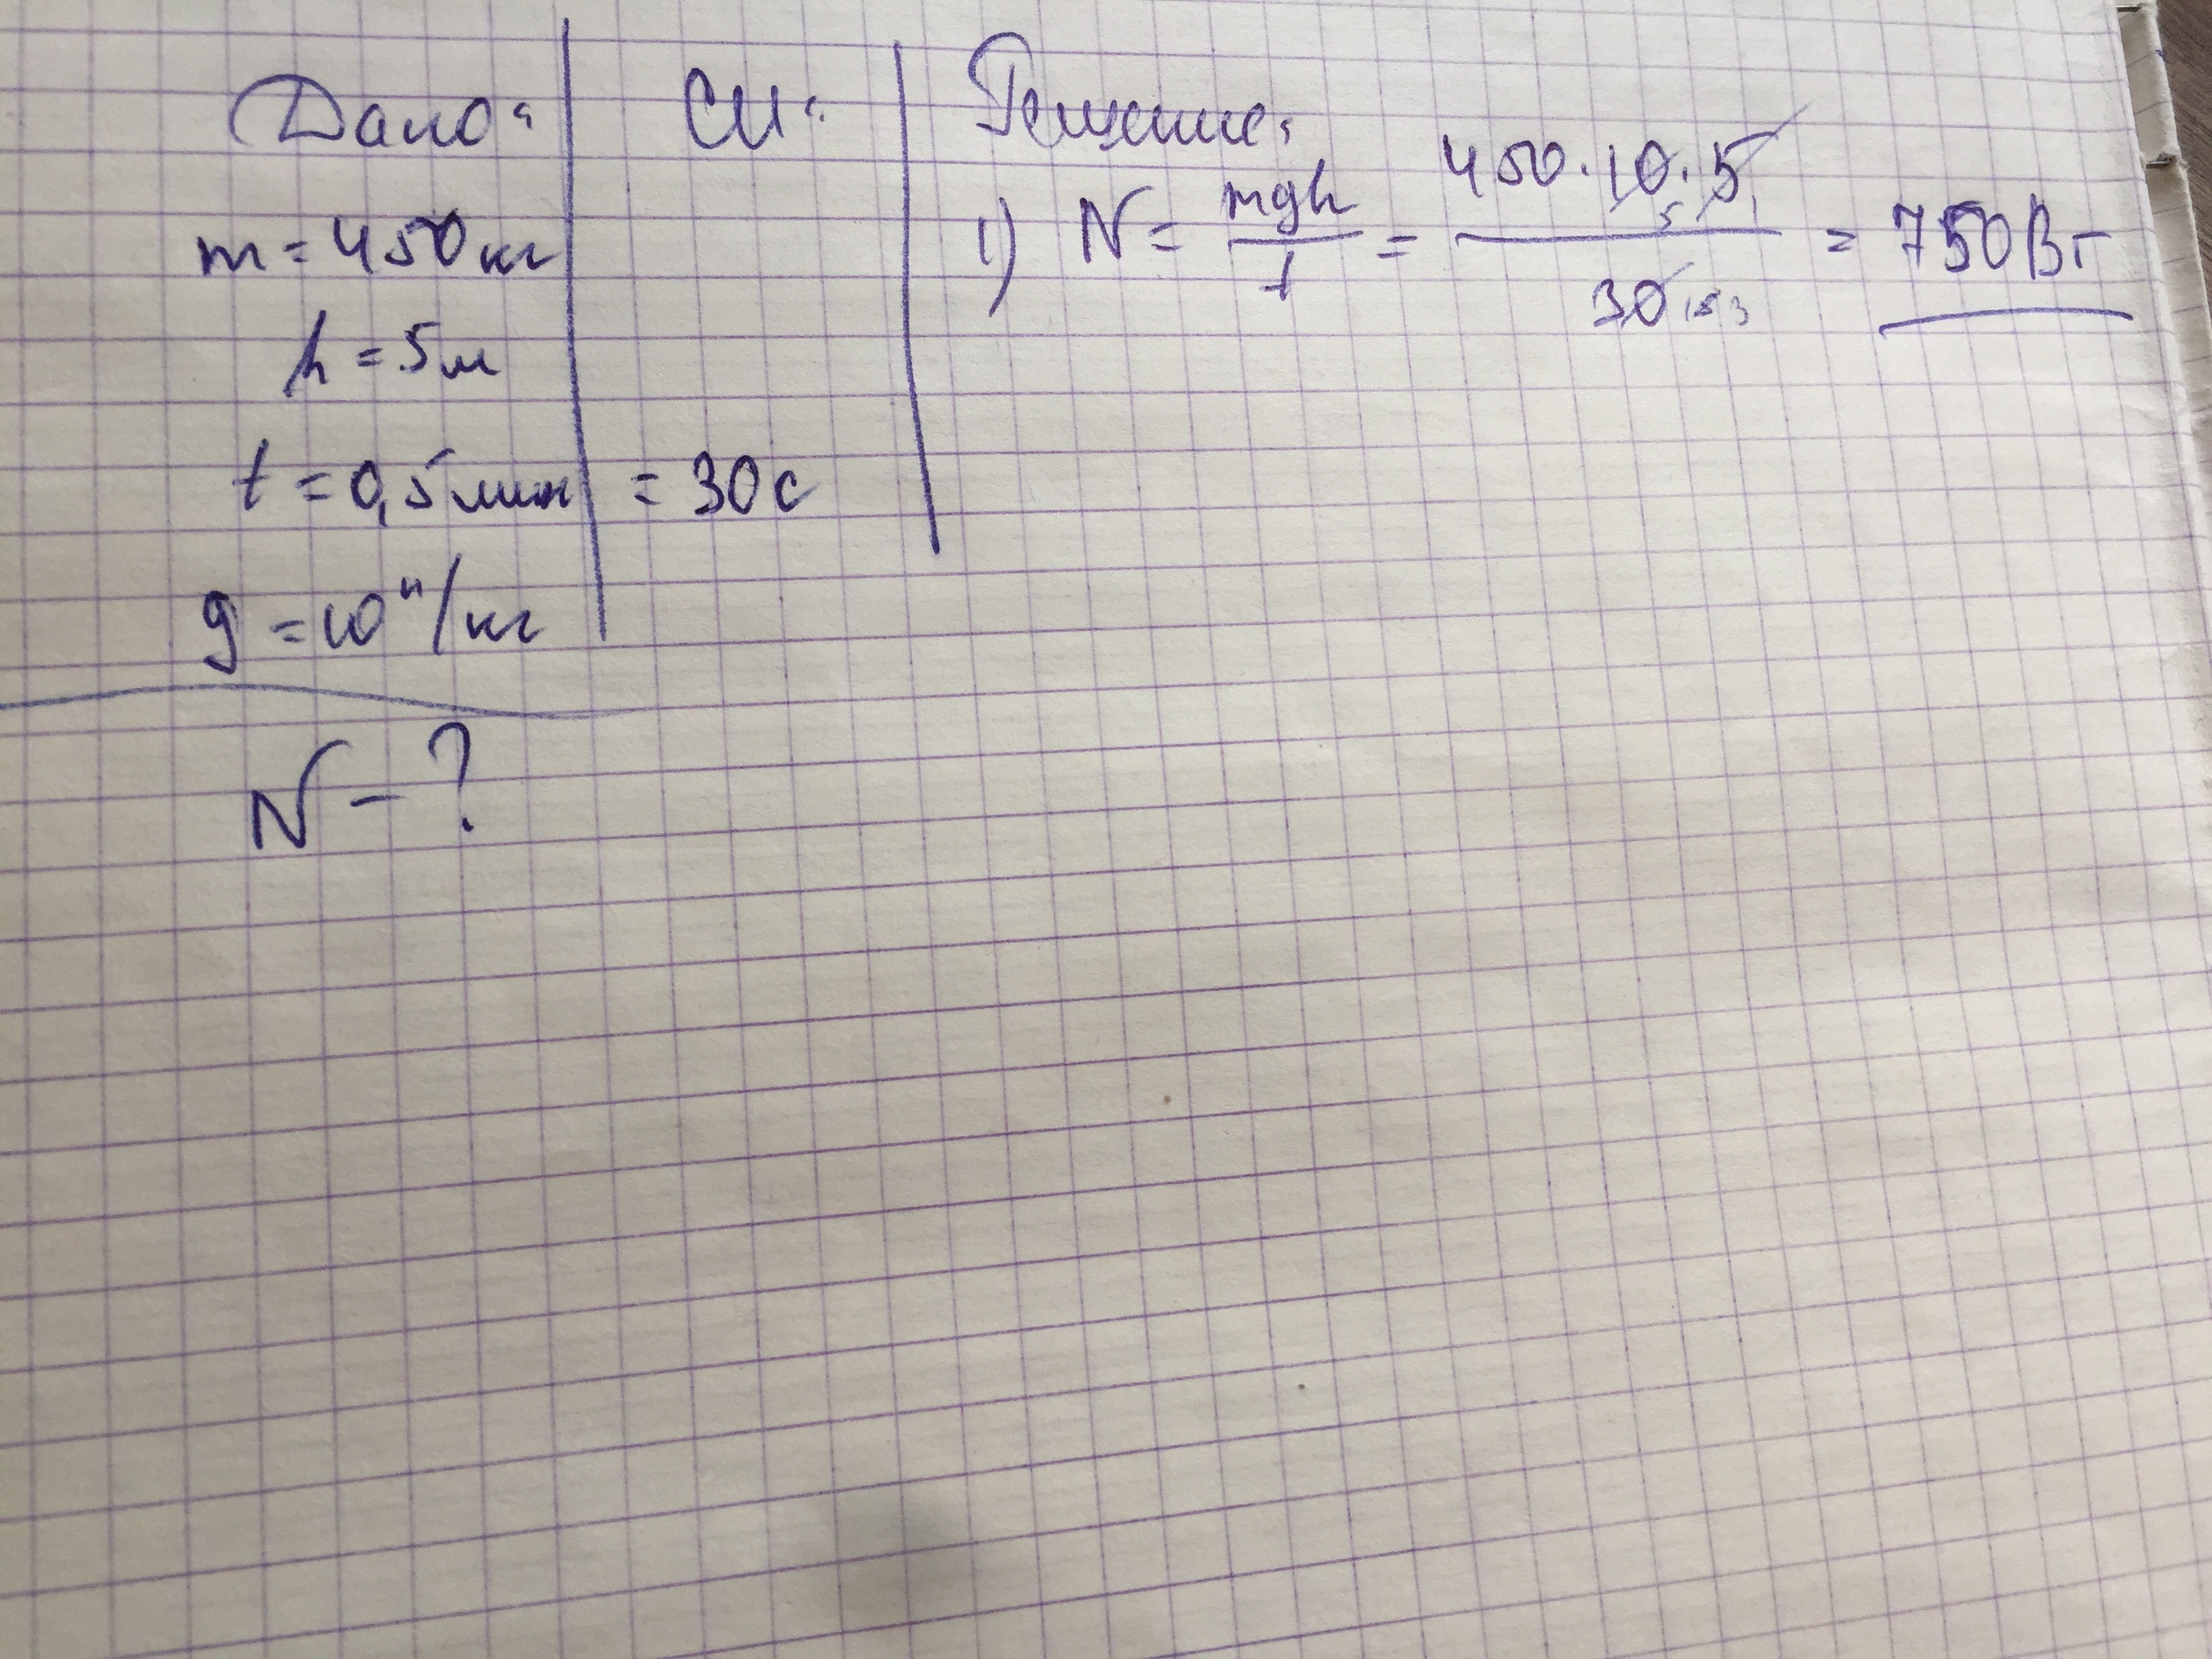 Дано: СИ: Решение:
m = 450 кг
1) N = mgh / t = 450 · 10 · 5 / 30 = 750 Вт
h = 5 м
t = 0,5 мин = 30 с
g = 10 н/кг
N - ?